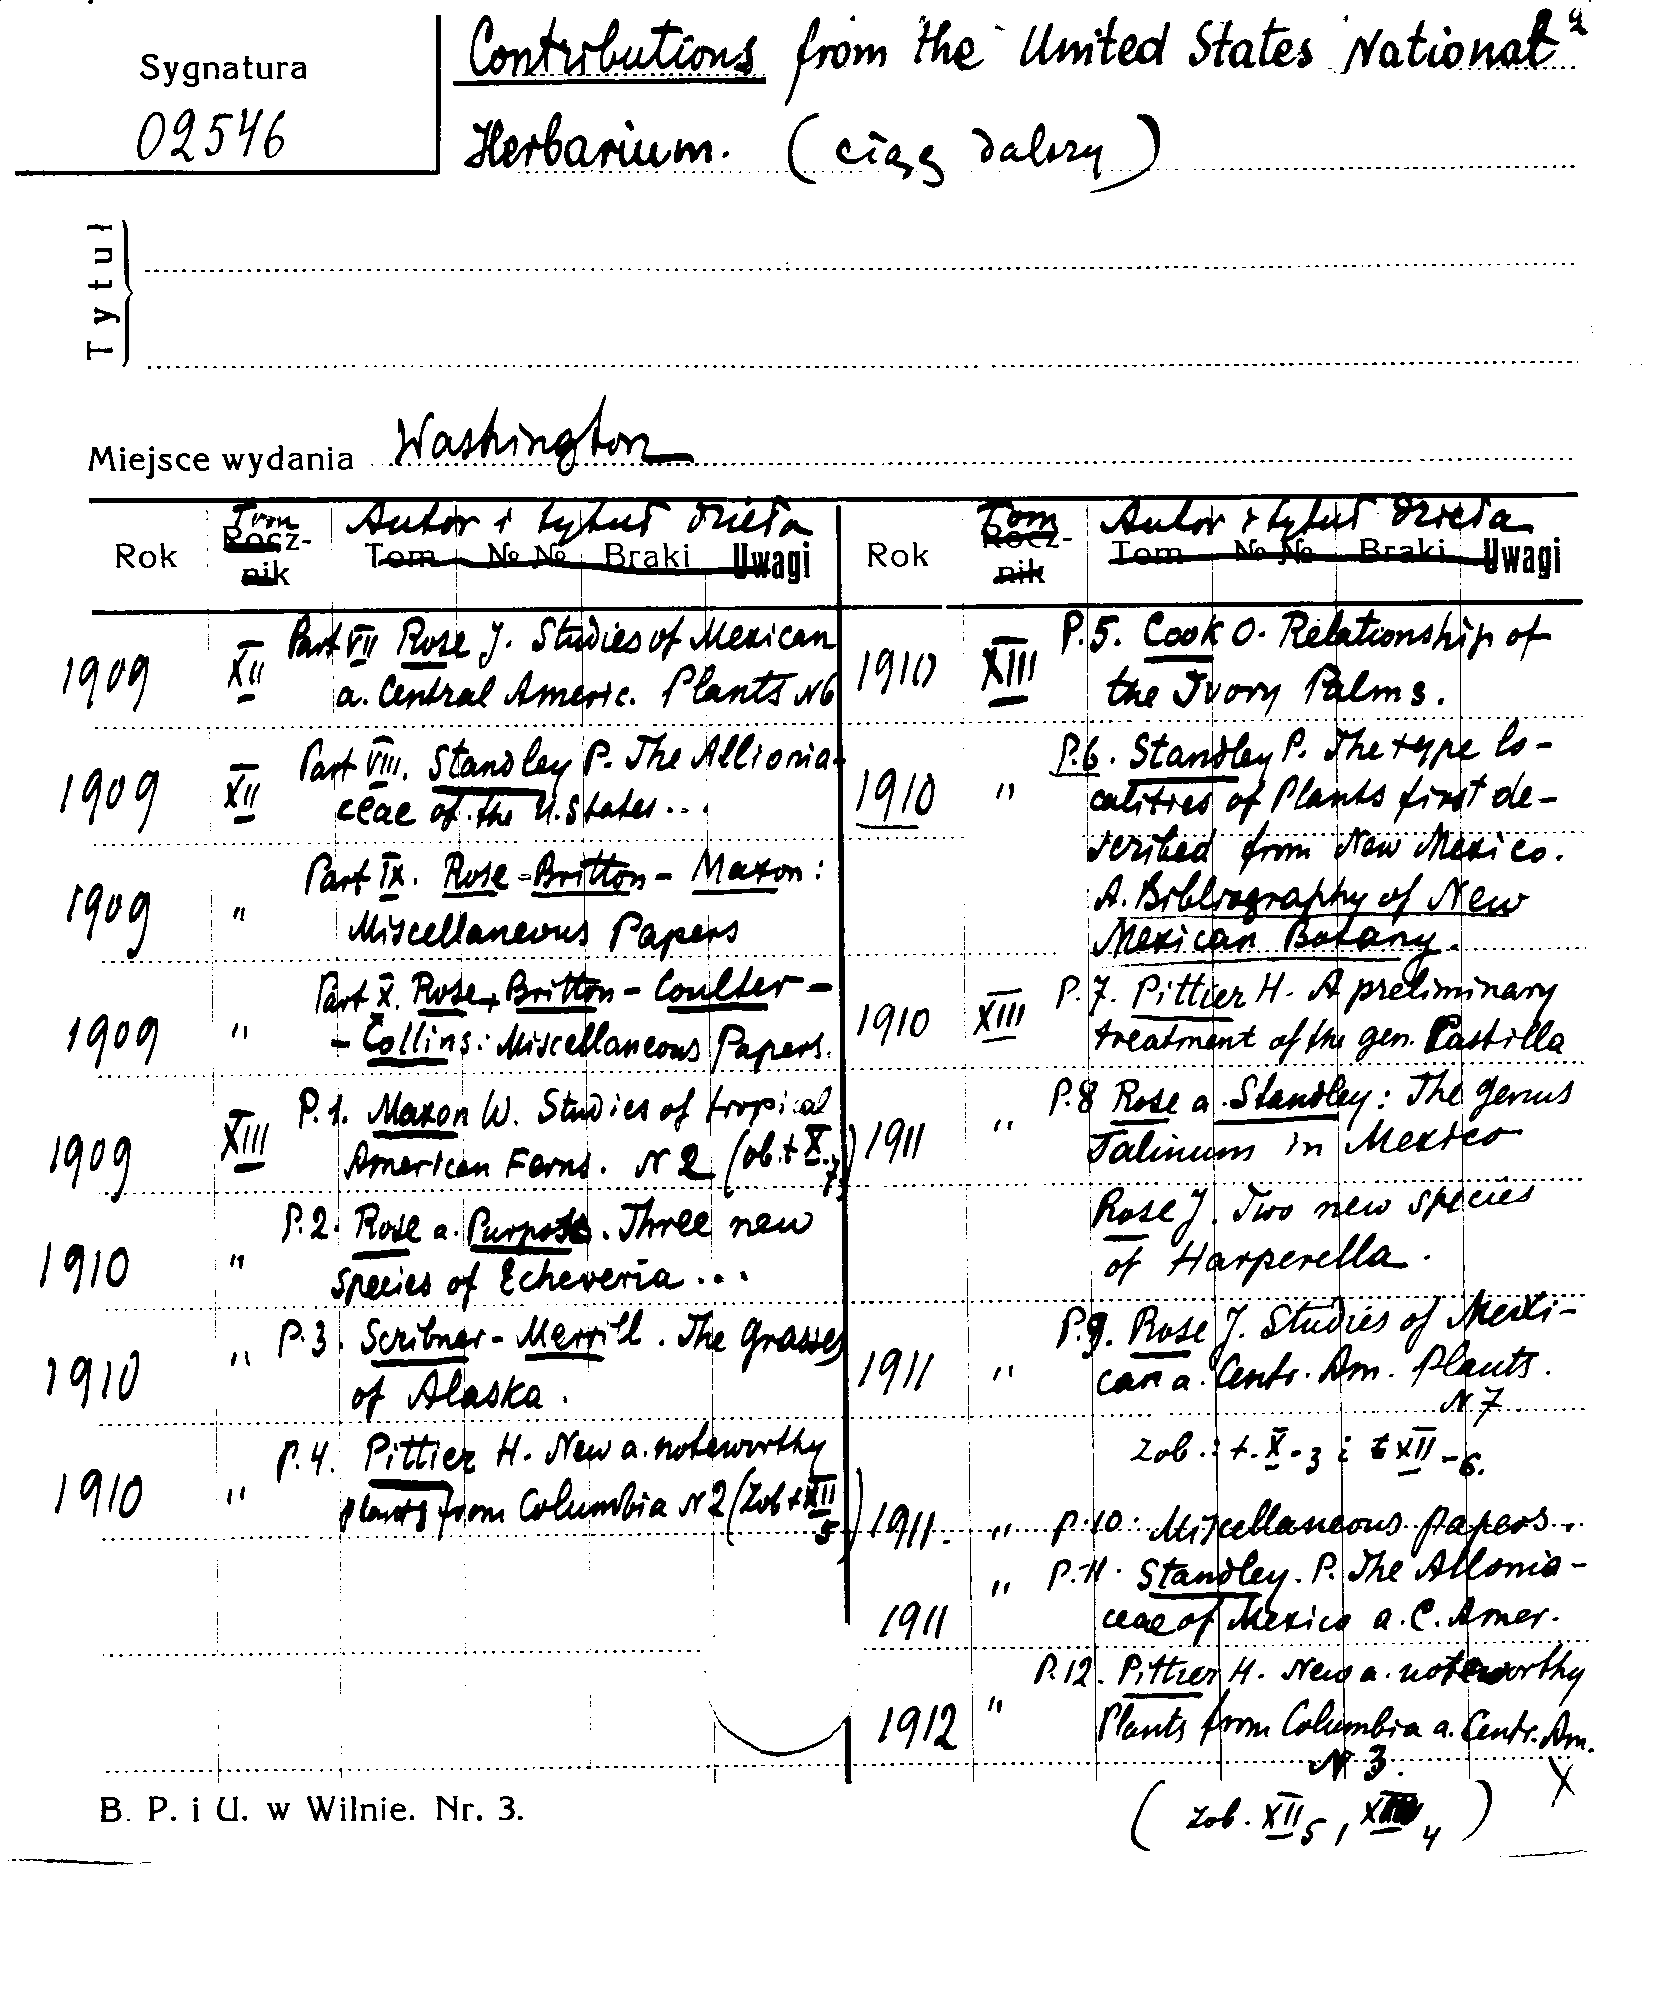 Sygnatura
02546
Contributions from the United States National
Herbarium. (ciąg dalszy)
Tytuł
Miejsce wydania Washington
Rok Tom Rocz-nik Autor i tytuł dzieła
Tom № № Braki Uwagi
1909 XII Part VII Rose J. Studies of Mexican
a. Central Americ. Plants N6
1909 XII Part VIII. Standley P. The Allionia-
ceae of the U. States...
1909 " Part IX. Rose-Britton-Maxon:
Miscellaneous Papers
1909 " Part X. Rose-Britton-Coulter-
-Collins: Miscellaneous Papers.
1909 XIII P.1. Maxon W. Studies of tropical
American Ferns. N 2 (ob. t X.7)
1910 " P.2. Rose a. Purpos. Three new
Species of Echeveria...
1910 " P.3. Scribner-Merrill. The grasses
of Alaska.
1910 " P.4. Pittier H. New a. noteworthy
plants from Columbia N2 (zob t XII 5)
Rok Tom Rocz-nik Autor i tytuł dzieła
Tom № № Braki Uwagi
1910 XIII P.5. Cook O. Relationship of
the Ivory Palms.
1910 " P.6. Standley P. The type lo-
calities of Plants first de-
scribed from New Mexico.
A. Bibliography of New
Mexican Botany.
1910 XIII P.7. Pittier H. A preliminary
treatment of the gen. Castilla
1911 " P.8 Rose a. Standley: The genus
Talinum in Mexico
Rose J. Two new species
of Harperella.
1911 " P.9. Rose J. Studies of Mexi-
can a. Centr. Am. Plants.
N 7
zob.: t. X-3 i t XII-6.
1911. " P.10. Miscellaneous papers.
1911 " P.11. Standley. P. The Allonia-
ceae of Mexico a. C. Amer.
1912 " P.12. Pittier H. New a. noteworthy
Plants from Columbia a. Centr. Am.
N 3.
(zob. XII 5, XIII 4)
B. P. i U. w Wilnie. Nr. 3.